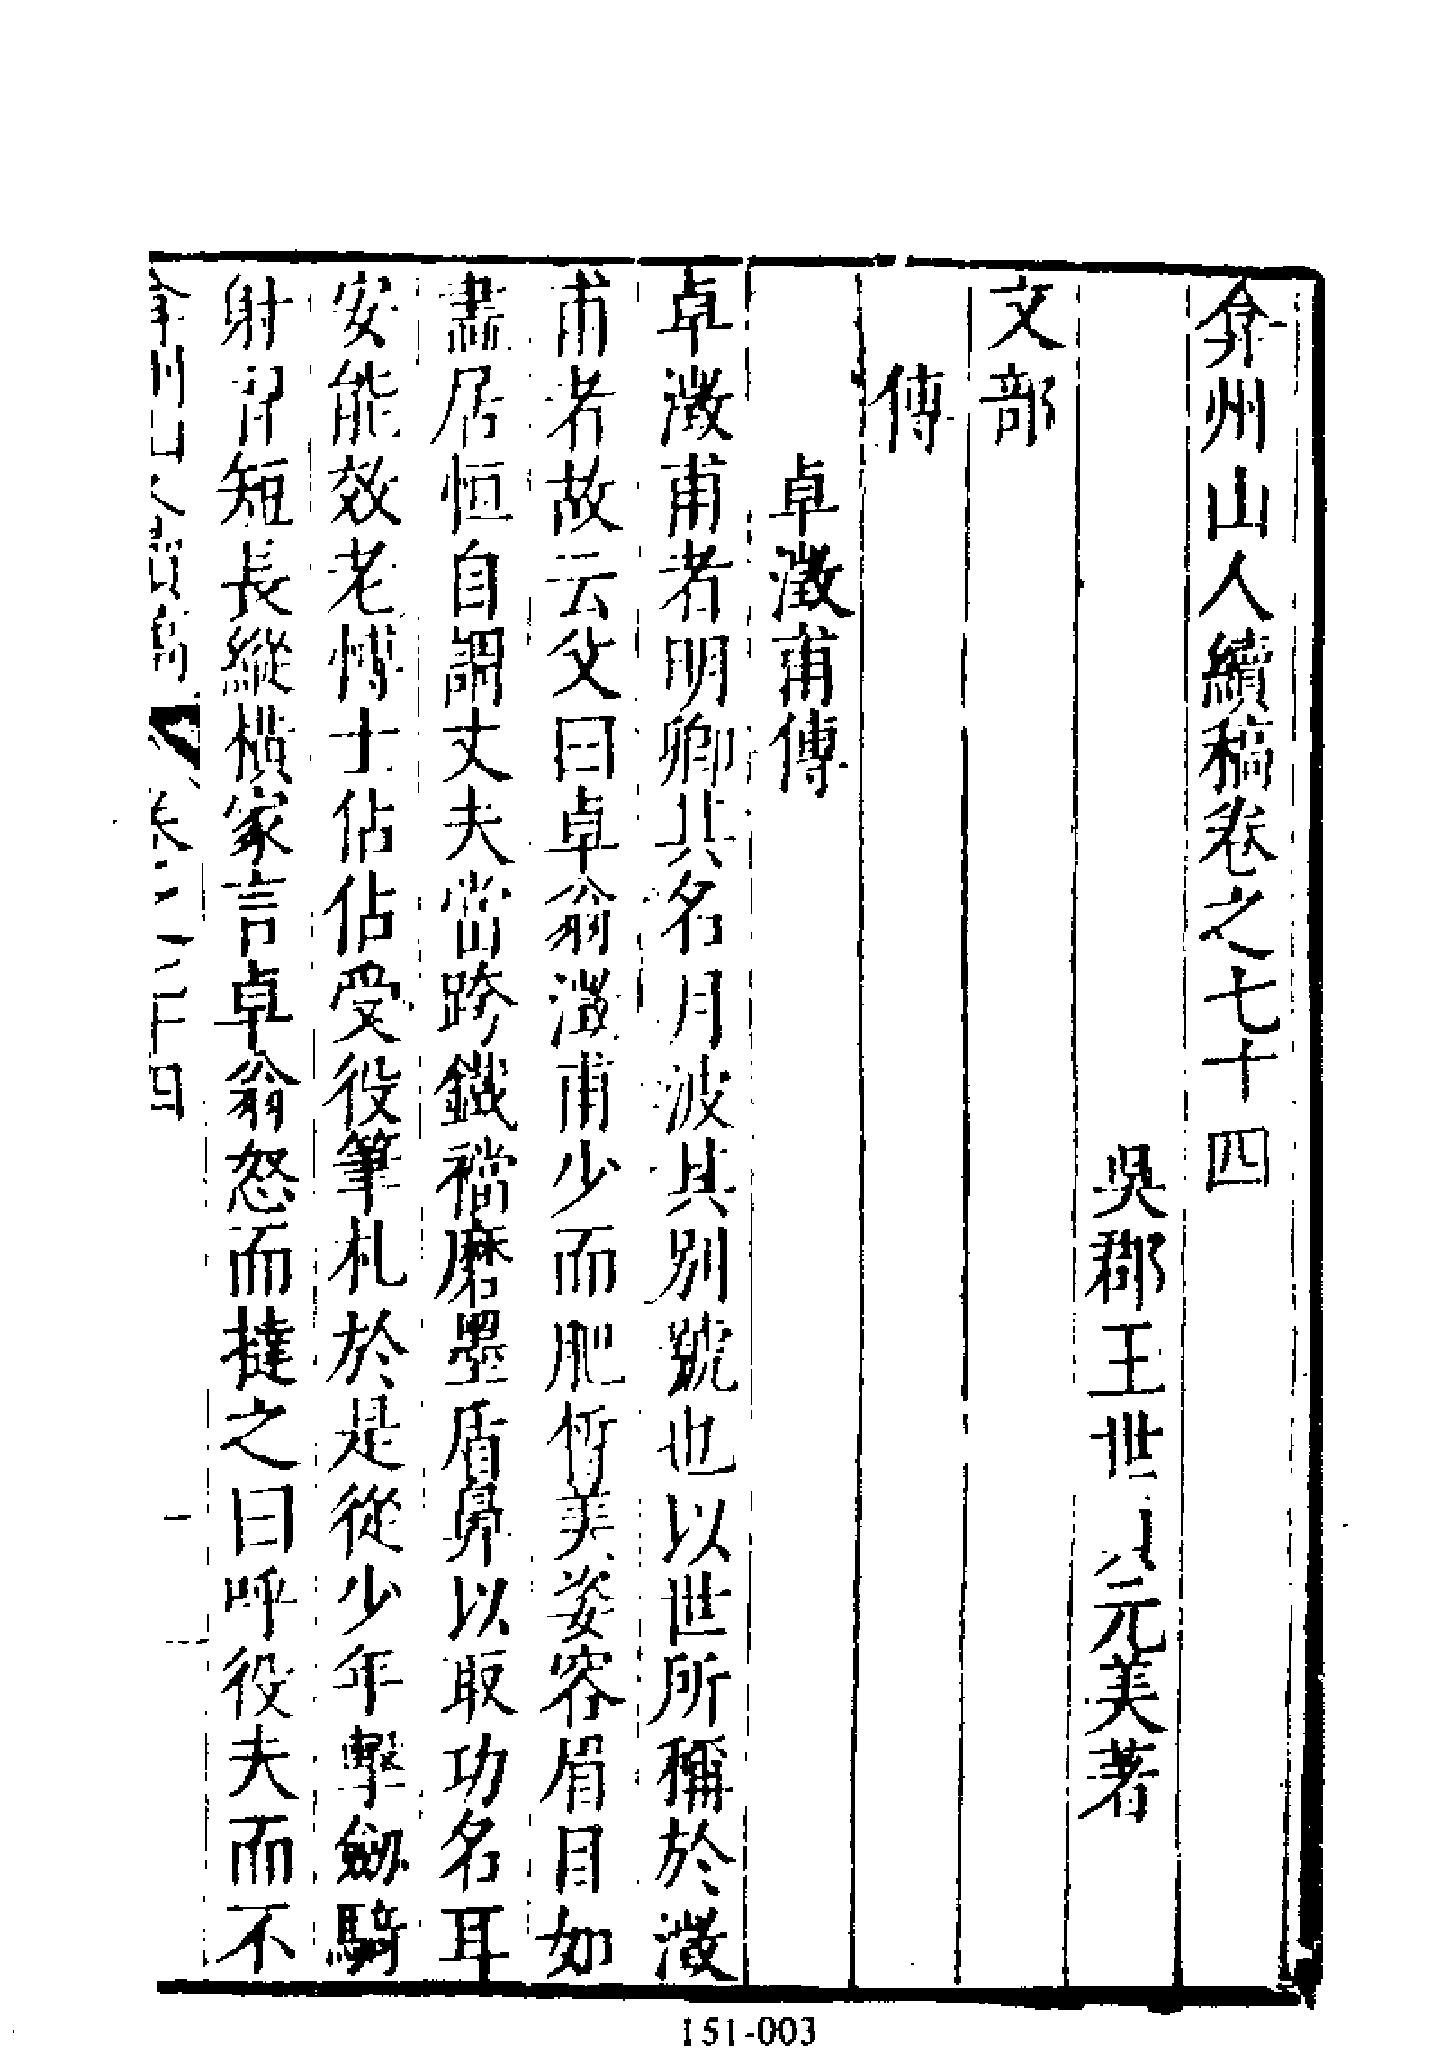 弇州山人續稿卷之七十四
吳郡王世貞元美著
文部
傳
卓澂甫傳
卓澂甫者明卿其名月波其別號也以世所稱於澂
甫者故云父曰卓翁澂甫少而肥晳美姿容眉目如
畫居恒自謂丈夫當跨鐵襠磨墨盾鼻以取功名耳
安能效老博士佔佔受役筆札於是從少年擊劒騎
射習短長縱橫家言卓翁怒而撻之曰呼役夫而不
弇州山人續稿 卷之七十四
151-003